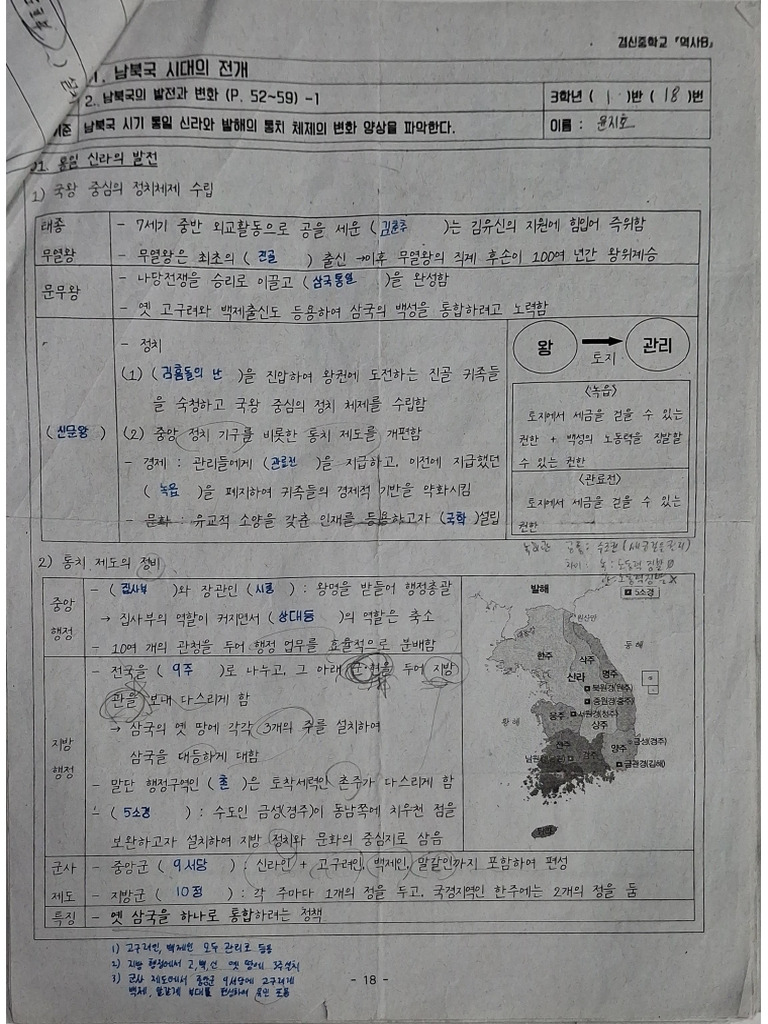 경신중학교 『역사B』
1. 남북국 시대의 전개
2. 남북국의 발전과 변화 (P. 52~59) -1
3학년 ( 1 )반 ( 18 )번
남북국 시기 통일 신라와 발해의 통치 체제의 변화 양상을 파악한다.
이름 : 윤지호
01. 통일 신라의 발전
1) 국왕 중심의 정치체제 수립
태종
무열왕
- 7세기 중반 외교활동으로 공을 세운 ( 김춘추 )는 김유신의 지원에 힘입어 즉위함
- 무열왕은 최초의 ( 진골 ) 출신 →이후 무열왕의 직계 후손이 100여 년간 왕위계승
문무왕
- 나당전쟁을 승리로 이끌고 ( 삼국통일 )을 완성함
- 옛 고구려와 백제출신도 등용하여 삼국의 백성을 통합하려고 노력함
( 신문왕 )
- 정치
(1) ( 김흠돌의 난 )을 진압하여 왕권에 도전하는 진골 귀족들
을 숙청하고 국왕 중심의 정치 체제를 수립함
(2) 중앙 정치 기구를 비롯한 통치 제도를 개편함
- 경제 : 관리들에게 ( 관료전 )을 지급하고, 이전에 지급했던
( 녹읍 )을 폐지하여 귀족들의 경제적 기반을 약화시킴
- 문화 : 유교적 소양을 갖춘 인재를 등용하고자 ( 국학 )설립
왕
토지
관리
<녹읍>
토지에서 세금을 걷을 수 있는
권한 + 백성의 노동력을 징발할
수 있는 권한
<관료전>
토지에서 세금을 걷을 수 있는
권한
2) 통치 제도의 정비
중앙
행정
- ( 집사부 )와 장관인 ( 시중 ) : 왕명을 받들어 행정총괄
→ 집사부의 역할이 커지면서 ( 상대등 )의 역할은 축소
- 10여 개의 관청을 두어 행정 업무를 효율적으로 분배함
지방
행정
- 전국을 ( 9주 )로 나누고, 그 아래 군·현을 두어 지방
관을 보내 다스리게 함
→ 삼국의 옛 땅에 각각 3개의 주를 설치하여
삼국을 대등하게 대함
- 말단 행정구역인 ( 촌 )은 토착세력인 촌주가 다스리게 함
- ( 5소경 ) : 수도인 금성(경주)이 동남쪽에 치우천 점을
보완하고자 설치하여 지방 정치와 문화의 중심지로 삼음
발해
5소경
원산만
동해
한주
삭주
신라
명주
북원경(원주)
중원경(충주)
황해
웅주
서원경(청주)
상주
전주
양주
금성(경주)
금관경(김해)
군사
제도
- 중앙군 ( 9서당 ) : 신라인 + 고구려인, 백제인, 말갈인까지 포함하여 편성
- 지방군 ( 10정 ) : 각 주마다 1개의 정을 두고, 국경지역인 한주에는 2개의 정을 둠
특징
- 옛 삼국을 하나로 통합하려는 정책
1) 고구려인, 백제인 모두 관리로 등용
2) 지방 행정에서 고,백,신 옛 땅에 3주설치
3) 군사 제도에서 중앙군 9서당에 고구려계
백제, 말갈계 부대를 편성하여 포용
- 18 -